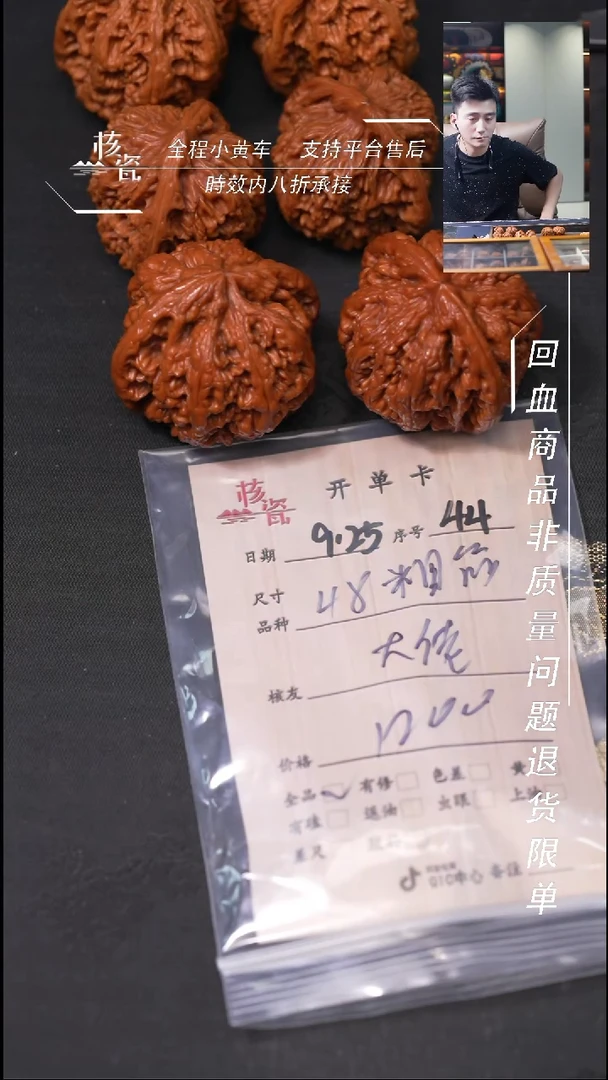 核瓷
全程小黄车 支持平台售后
時效内八折承接
回血商品非质量问题退货限单
核瓷
开单卡
日期 9.25 序号 44
尺寸 48粗筋
品种
大佬
核友
价格
全品 有修 色差 黄
有磕 退油 虫眼 上油
差尺
QIC中心 备注